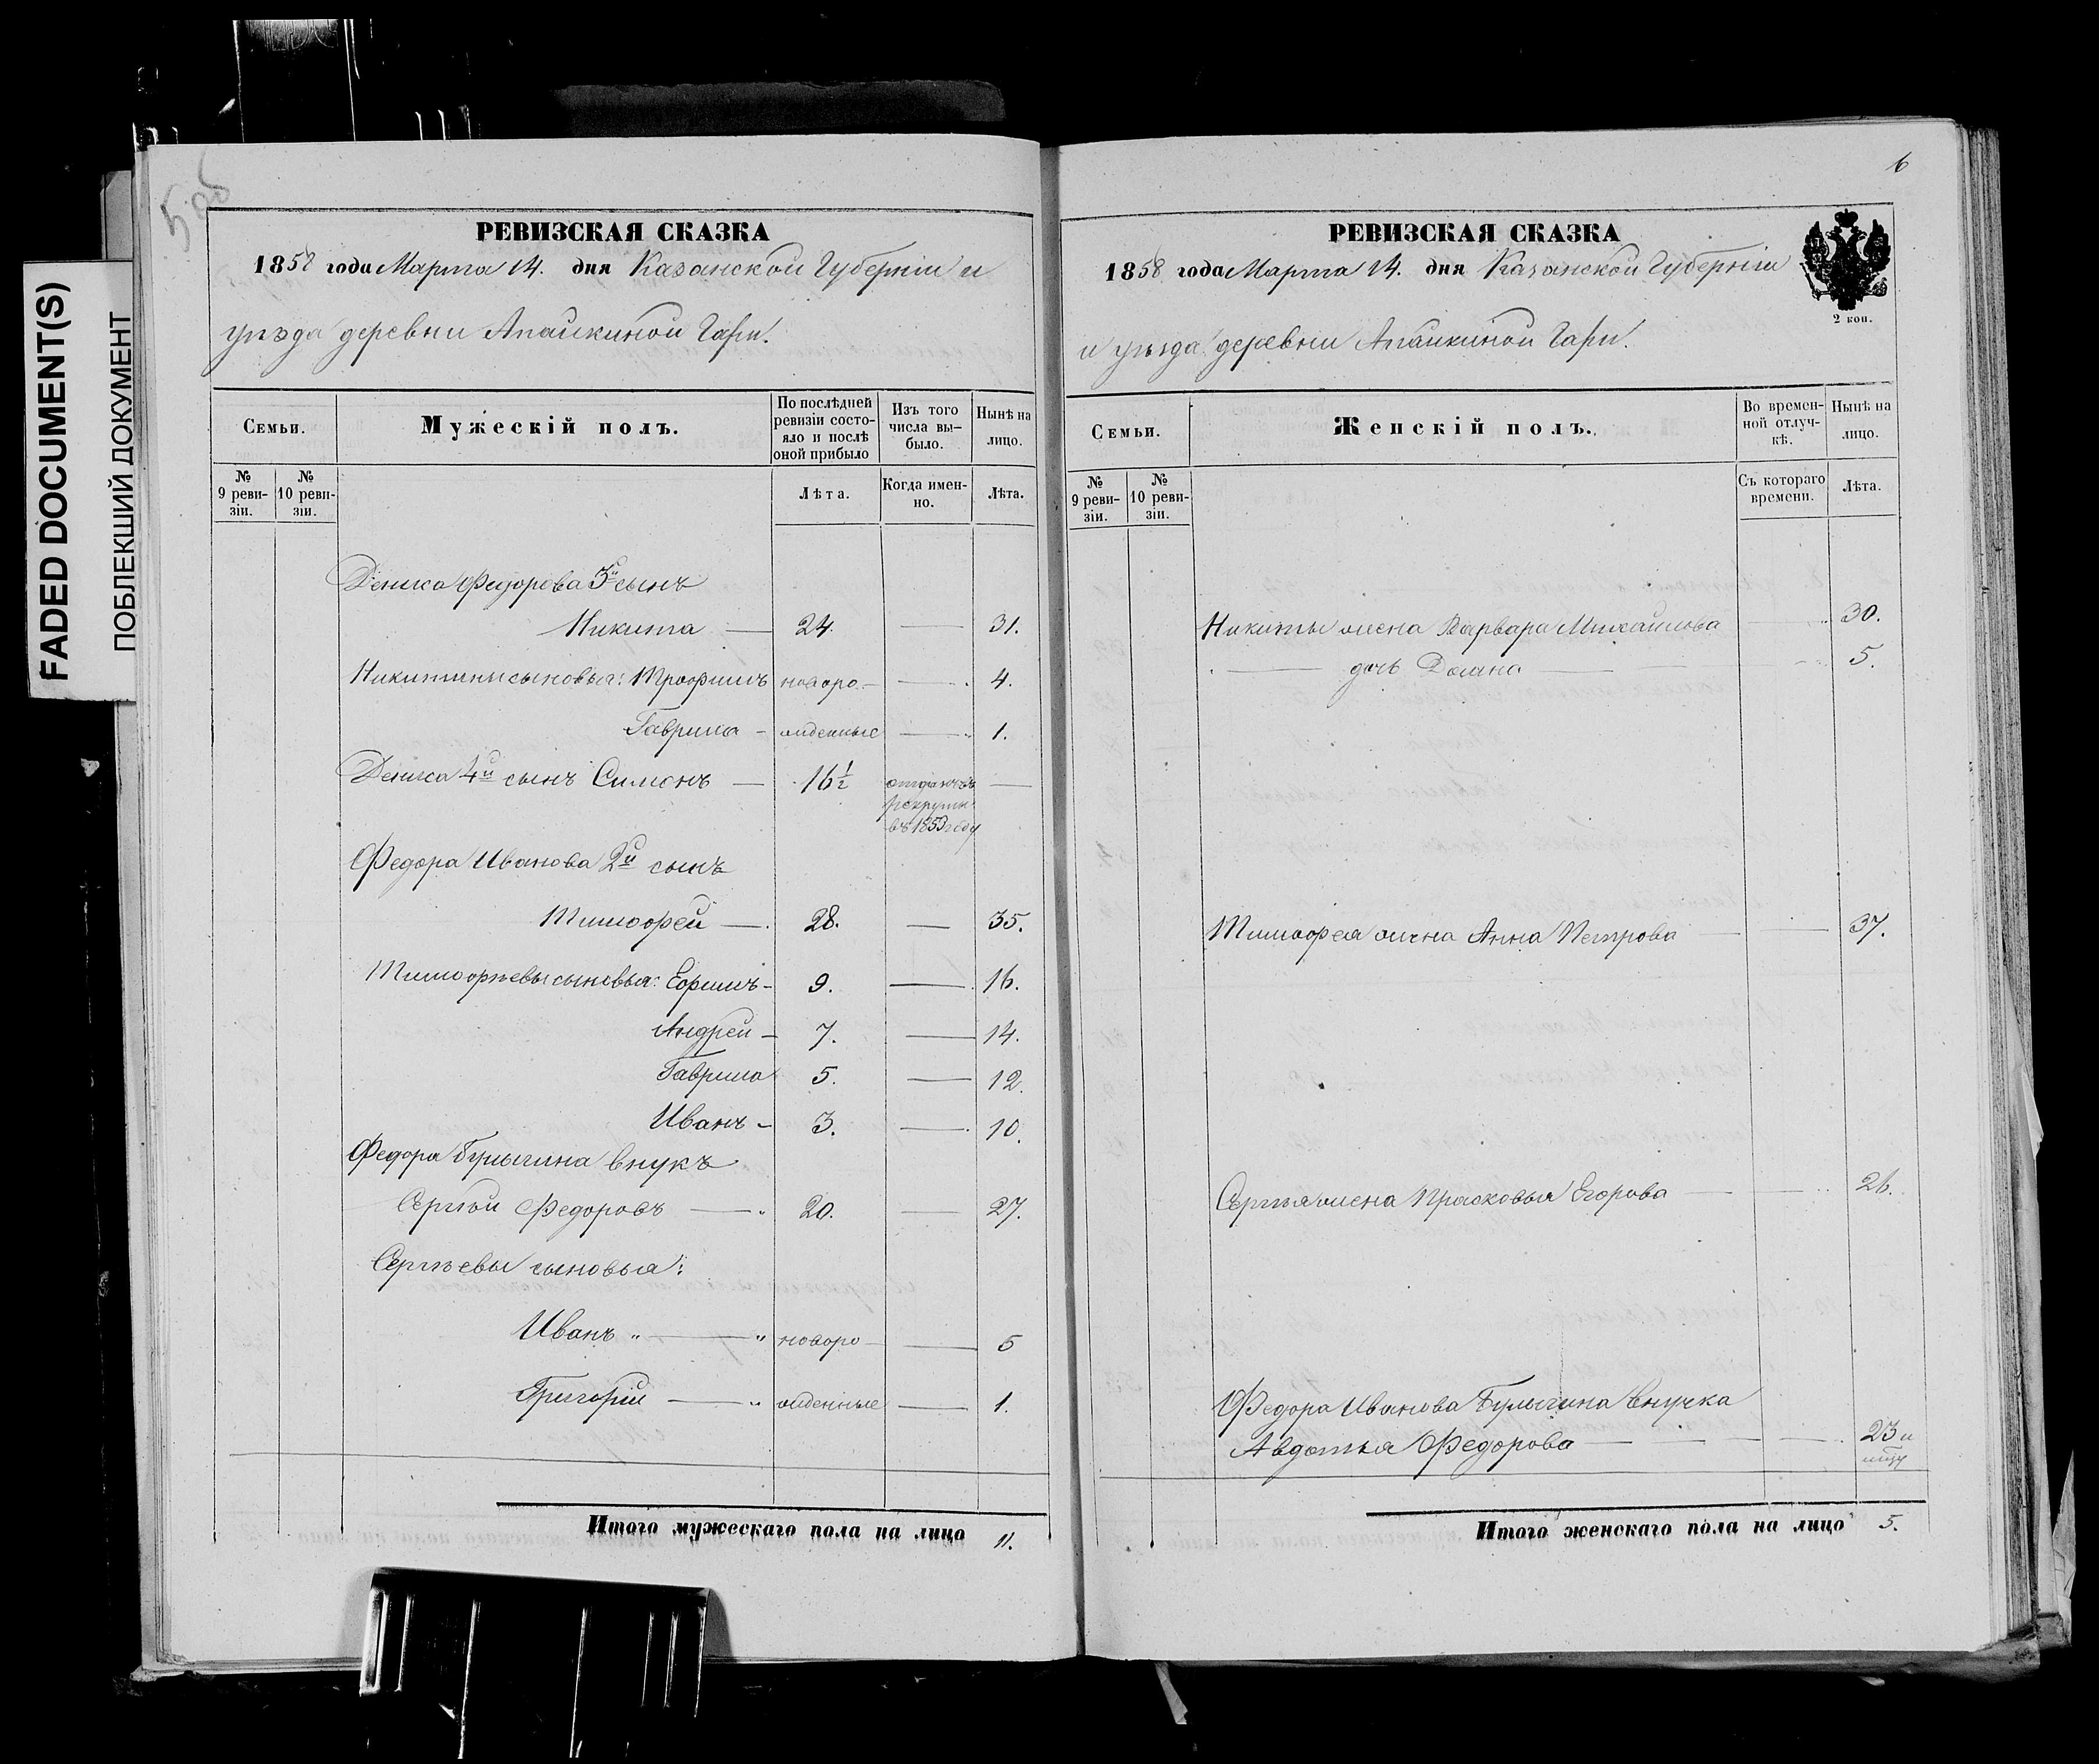 FADED DOCUMENT(S)
ПОБЛЕКШИЙ ДОКУМЕНТ
5 об
РЕВИЗСКАЯ СКАЗКА
1858 года Марта 14. дня Казанской Губерніи и
уѣзда деревни Апайкиной Гари.
Семьи.
Мужескій полъ.
По послѣдней ревизіи состояло и послѣ оной прибыло
Изъ того числа выбыло.
Нынѣ на лицо.
№ 9 ревизіи.
№ 10 ревизіи.
Лѣта.
Когда именно.
Лѣта.
Дениса Федорова 3й сынъ
Никита — 24. — 31.
Никитины сыновья: Трофимъ новоро — 4.
Гаврила - жденные — 1.
Дениса 4й сынъ Симонъ — 16½ отданъ въ рекруты въ 1853 году —
Федора Иванова 2й сынъ
Тимофей — 28. — 35.
Тимофѣевы сыновья: Ефимъ - 9. — 16.
Андрей - 7. — 14.
Гаврила 5. — 12.
Иванъ - 3. — 10.
Федора Булыгина внукъ
Сергѣй Федоровъ — 20. — 27.
Сергѣевы сыновья:
Иванъ — новоро — 5
Григорій — жденные — 1.
Итого мужескаго пола на лицо 11.
6
РЕВИЗСКАЯ СКАЗКА
1858 года Марта 14. дня Казанской Губерніи
и уѣзда деревни Апайкиной Гари.
2 коп.
Семьи.
Женскій полъ.
Во временной отлучкѣ.
Нынѣ на лицо.
№ 9 ревизіи.
№ 10 ревизіи.
Съ котораго времени.
Лѣта.
Никиты жена Варвара Михайлова 30.
— дочь Домна — 5.
Тимофея жена Анна Петрова — 37.
Сергѣя жена Прасковья Егорова — 26.
Федора Иванова Булыгина внучка
Авдотья Федорова — 23
Итого женскаго пола на лицо 5.